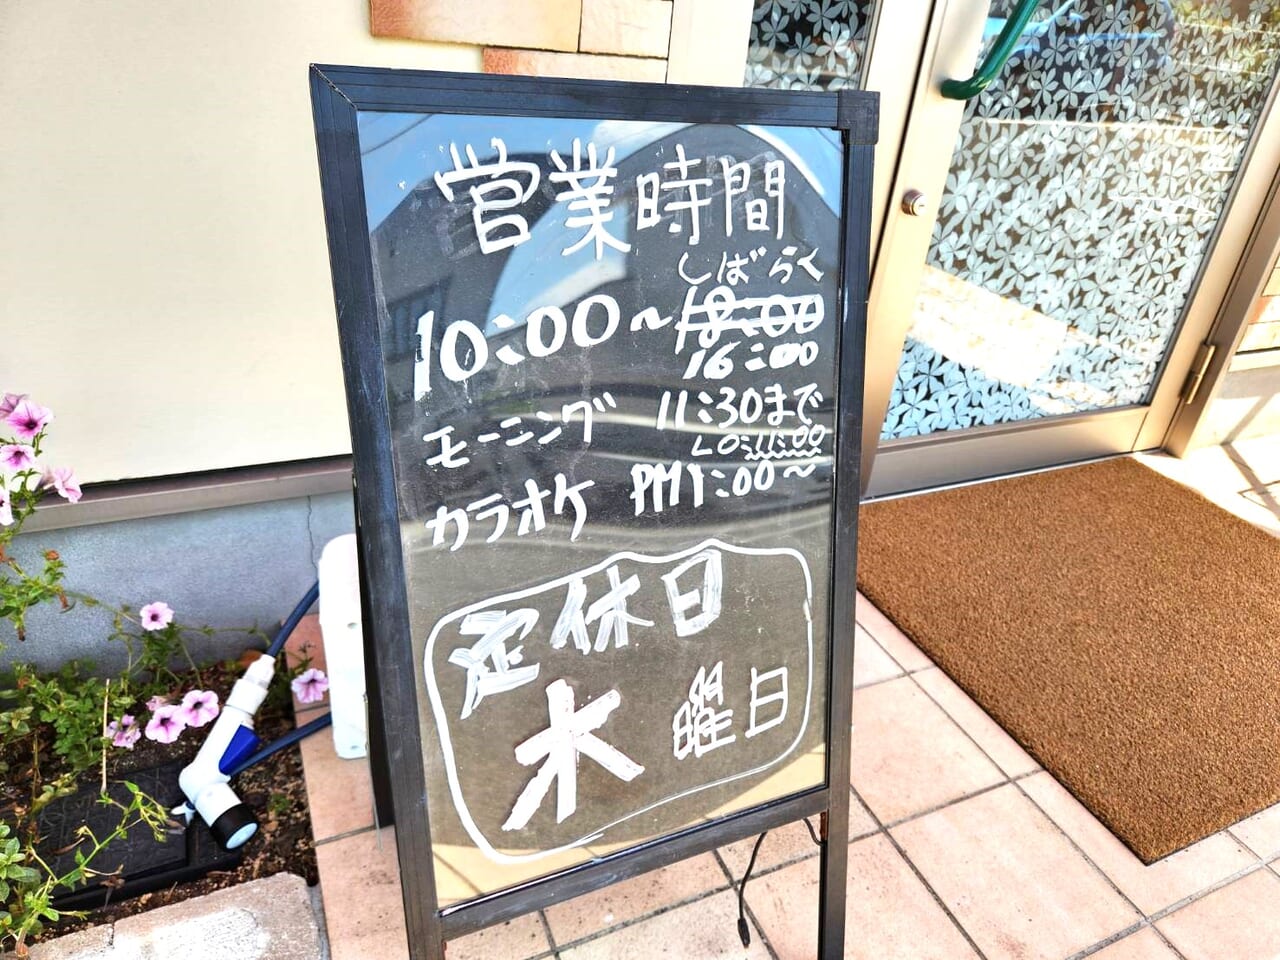 営業時間
しばらく
10:00~18:00
16:00
モーニング 11:30まで
LO:11:00
カラオケ PM1:00~
定休日
水曜日